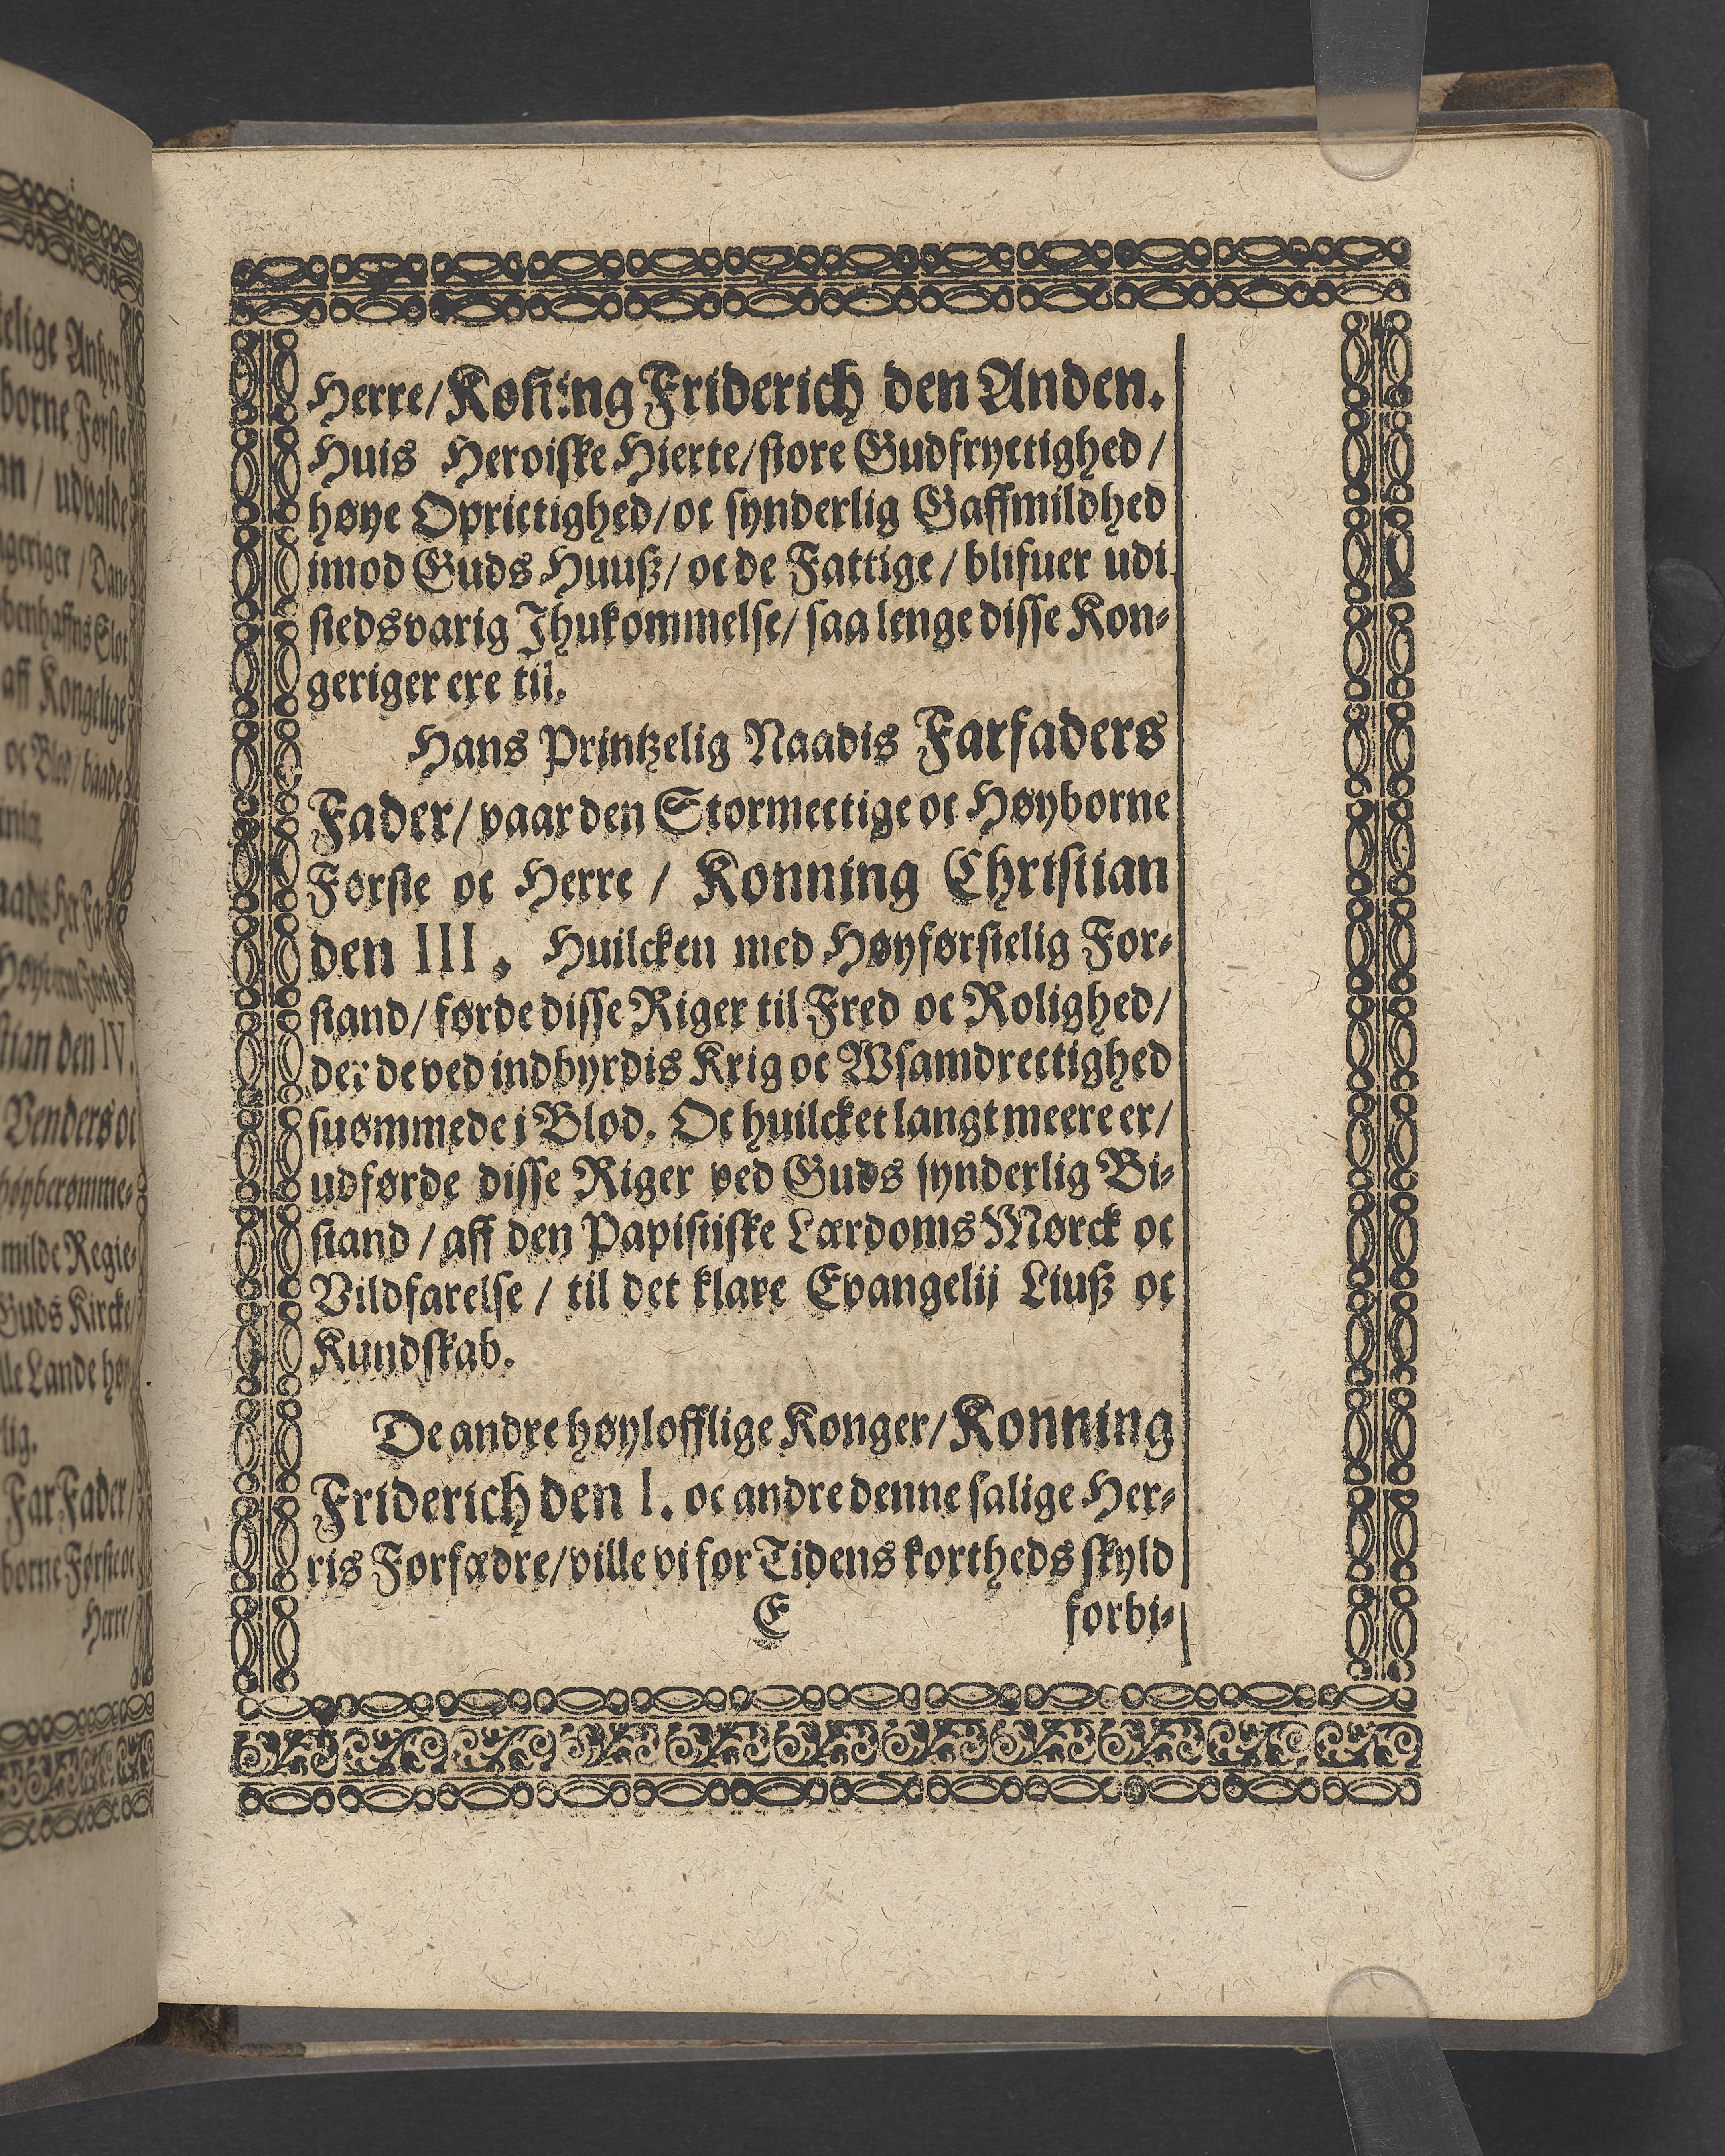 Herre/Koñing Friderich den Anden.
Huis Heroiske Hierte/store Gudfryctighed/
høye Oprictighed/oc synderlig Gaffmildhed
imod Guds Huuß/oc de Fattige/blifuer udi
stedsvarig Ihukommelse/saa lenge disse Kon-
geriger ere til.
Hans Printzelig Naadis Farfaders
Fader/vaar den Stormectige oc Høyborne
Første oc Herre/Konning Christian
den III. Huilcken med Høyførstelig For-
stand/førde disse Riger til Fred oc Rolighed/
der de ved indbyrdis Krig oc Wsamdrectighed
suømmede i Blod. Oc huilcket langt meere er/
udførde disse Riger ved Guds synderlig Bi-
stand/aff den Papistiske Lærdoms Mørck oc
Vildfarelse/til det klare Evangelij Liuß oc
Kundskab.
De andre høylofflige Konger/Konning
Friderich den I. oc andre denne salige Her-
ris Forfædre/ville vi for Tidens kortheds skyld
E forbi-
elige
borne Første
an/udvalde
geriger/Dan-
benhaffns Slot
aff Kongelige
oc Blod/baade
stian den IV.
Venders oc
høyberømme-
milde Regie-
Guds Kircke/
lle Lande høy-
lig.
Far Fader/
borne Første oc
Herre/